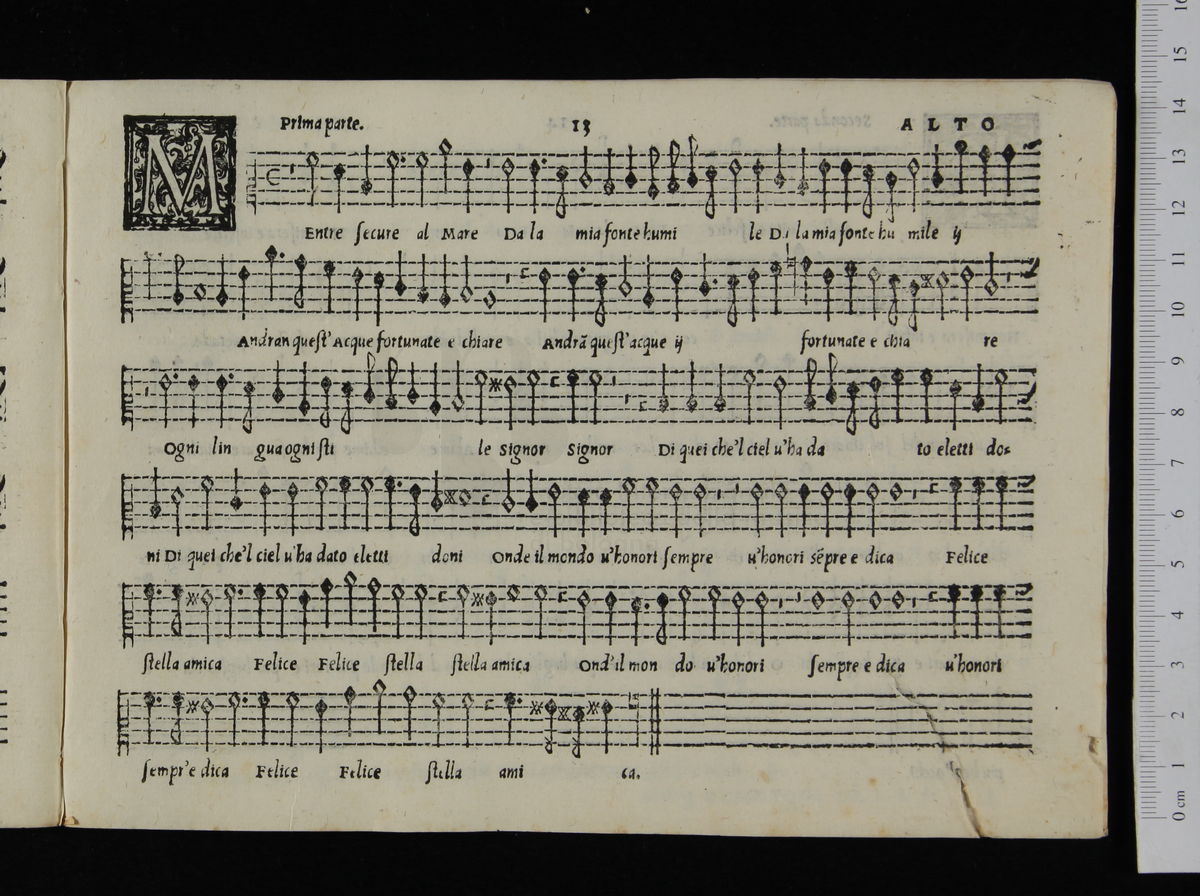 Prima parte. 13 ALTO
MEntre secure al Mare Da la mia fonte humi le Da la mia fonte hu mile ij
Andran quest' Acque fortunate e chiare Andrã quest' acque ij fortunate e chia re
Ogni lin gua ogni sti le Signor Signor Di quei che'l ciel u'ha da to eletti do-
ni Di quei che'l ciel u'ha dato eletti doni Onde il mondo u'honori sempre u'honori sẽpre e dica Felice
stella amica Felice Felice stella stella amica Ond'il mon do u'honori sempre e dica u'honori
sempr'e dica Felice Felice stella ami ca.
0 cm 1 2 3 4 5 6 7 8 9 10 11 12 13 14 15 16